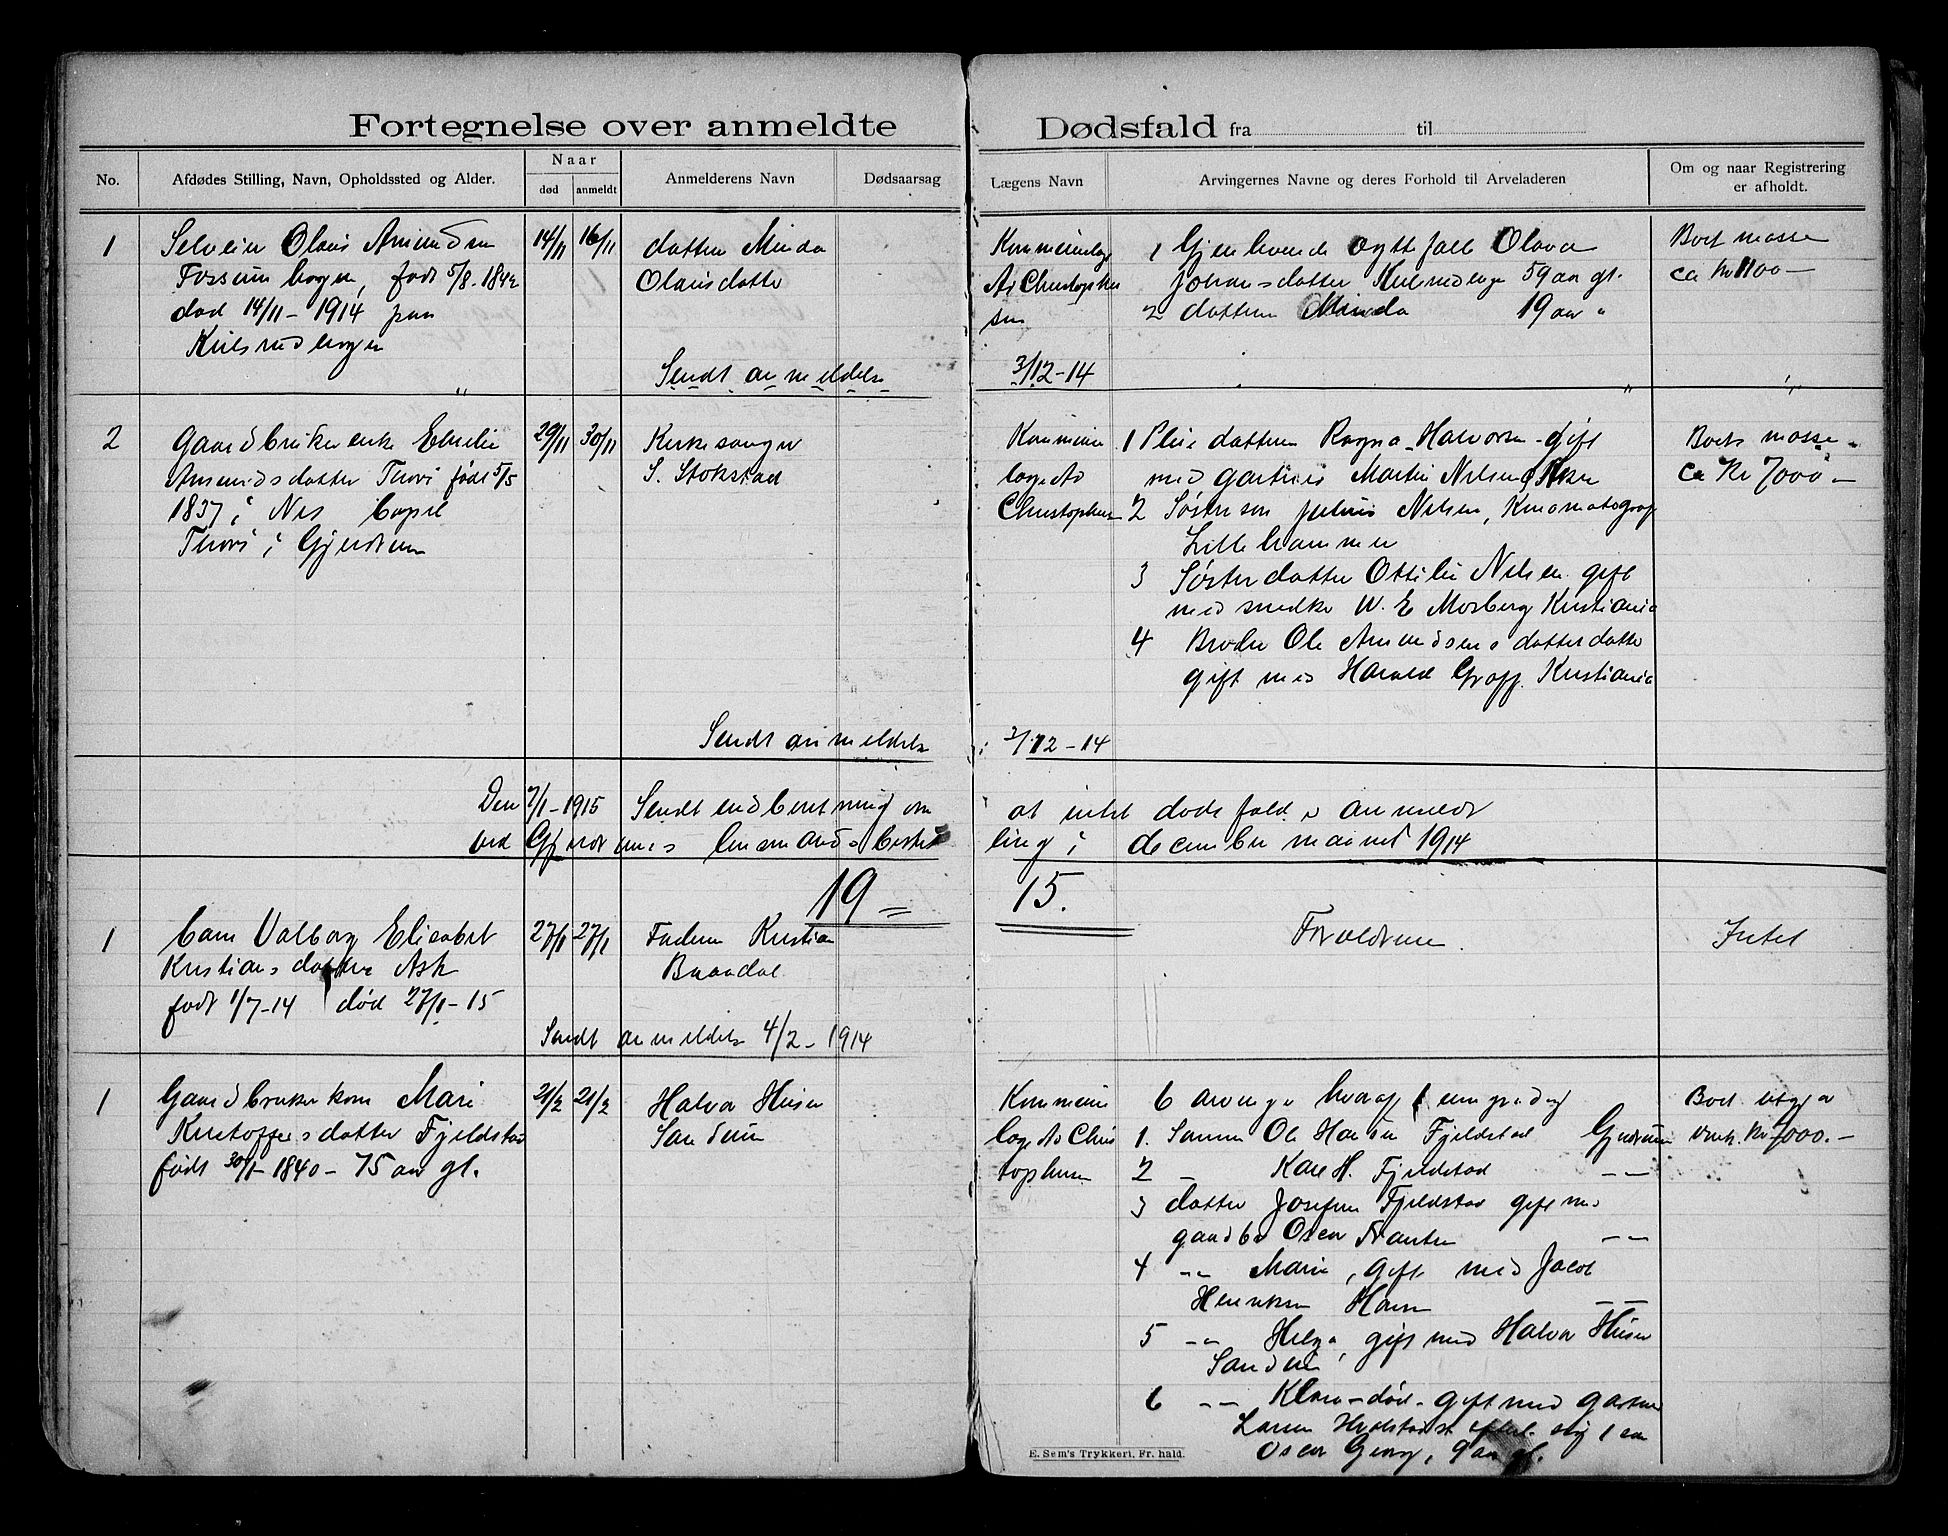 Fortegnelse over anmeldte Dødsfald fra til
No.
Afdødes Stilling, Navn, Opholdssted og Alder.
Naar
død
anmeldt
Anmelderens Navn
Dødsaarsag
Lægens Navn
Arvingernes Navne og deres Forhold til Arveladeren
Om og naar Registrering
er afholdt.
1
Selveier Olaus Amundsen
Fossum hagen, født 5/8-1842
død 14/11-1914 paa
Kulsrudhagen
14/11
16/11
datteren Minda
Olausdatter
Sendt anmeldelse
Kommunelæge
As Christophersen
3/12-14
1 Gjenlevende ægtefælle Olava
Johansdatter Kulsrudhagen 59 aar gl.
2 datteren Minda 19 aar "
Boets masse
ca Kr 1100 -
2
Gaardbrukerenke Emilie
Amundsdatter Thovi født 5/5
1837 i Nes bopæl
Thovi i Gjerdrum
29/11
30/11
Kirkesanger
S. Stokstad
Sendt anmeldelse
Kommune
læge As
Christophersen
3/12-14
1 Pleiedatteren Ragna Halvorsen gift
med gartner Martin Nilsen, Aker
2 Søstersøn Julius Nilsen, Kinematograf
Lillehammer
3 Søsterdatter Ottilie Nilsen gift
med snedker W. E. Mosberg Kristiania
4 Broder Ole Amundsens datterdatter
gift med Harald Graff Kristiania
Boets masse
ca Kr 7000 -
Den 7/1-1915 Sendt indberetning om at intet dødsfald er anmeldt
ved Gjerdrums lensmandsbestilling i december maaned 1914
1915.
1
barn Valborg Elisabet
Kristiansdatter Ask
født 1/7-14 død 27/1-15
27/1
27/1
Faderen Kristian
Braadal
Sendt anmeldelse 4/2-1914
Forældrene
Intet
1
Gaardbrukerkone Mari
Kristoffersdatter Fjeldstad
født 30/1-1840 - 75 aar gl.
21/2
21/2
Halvor Huser
Sandum
Kommune
læge As Chris
tophersen
6 arvinger hvoraf 1 umyndig
1. Sønnen Ole Hansen Fjeldstad Gjerdrum
2 - Kare H. Fjeldstad - -
3 datter Josefine Fjeldstad gift med
gaardbr Oscar Frantsen - -
4 - - Marie, gift med Jacob
Henriksen - -
5 - - Helga, gift med Halvor Huser
Sandum
6 - - Klara - død - gift med gartner
Larsen efterl. sig 1 søn
Oscar Georg, 9 aar gl.
Boet utgjør
Kr 7000.-
E. Sem's Trykkeri, Fr. hald.